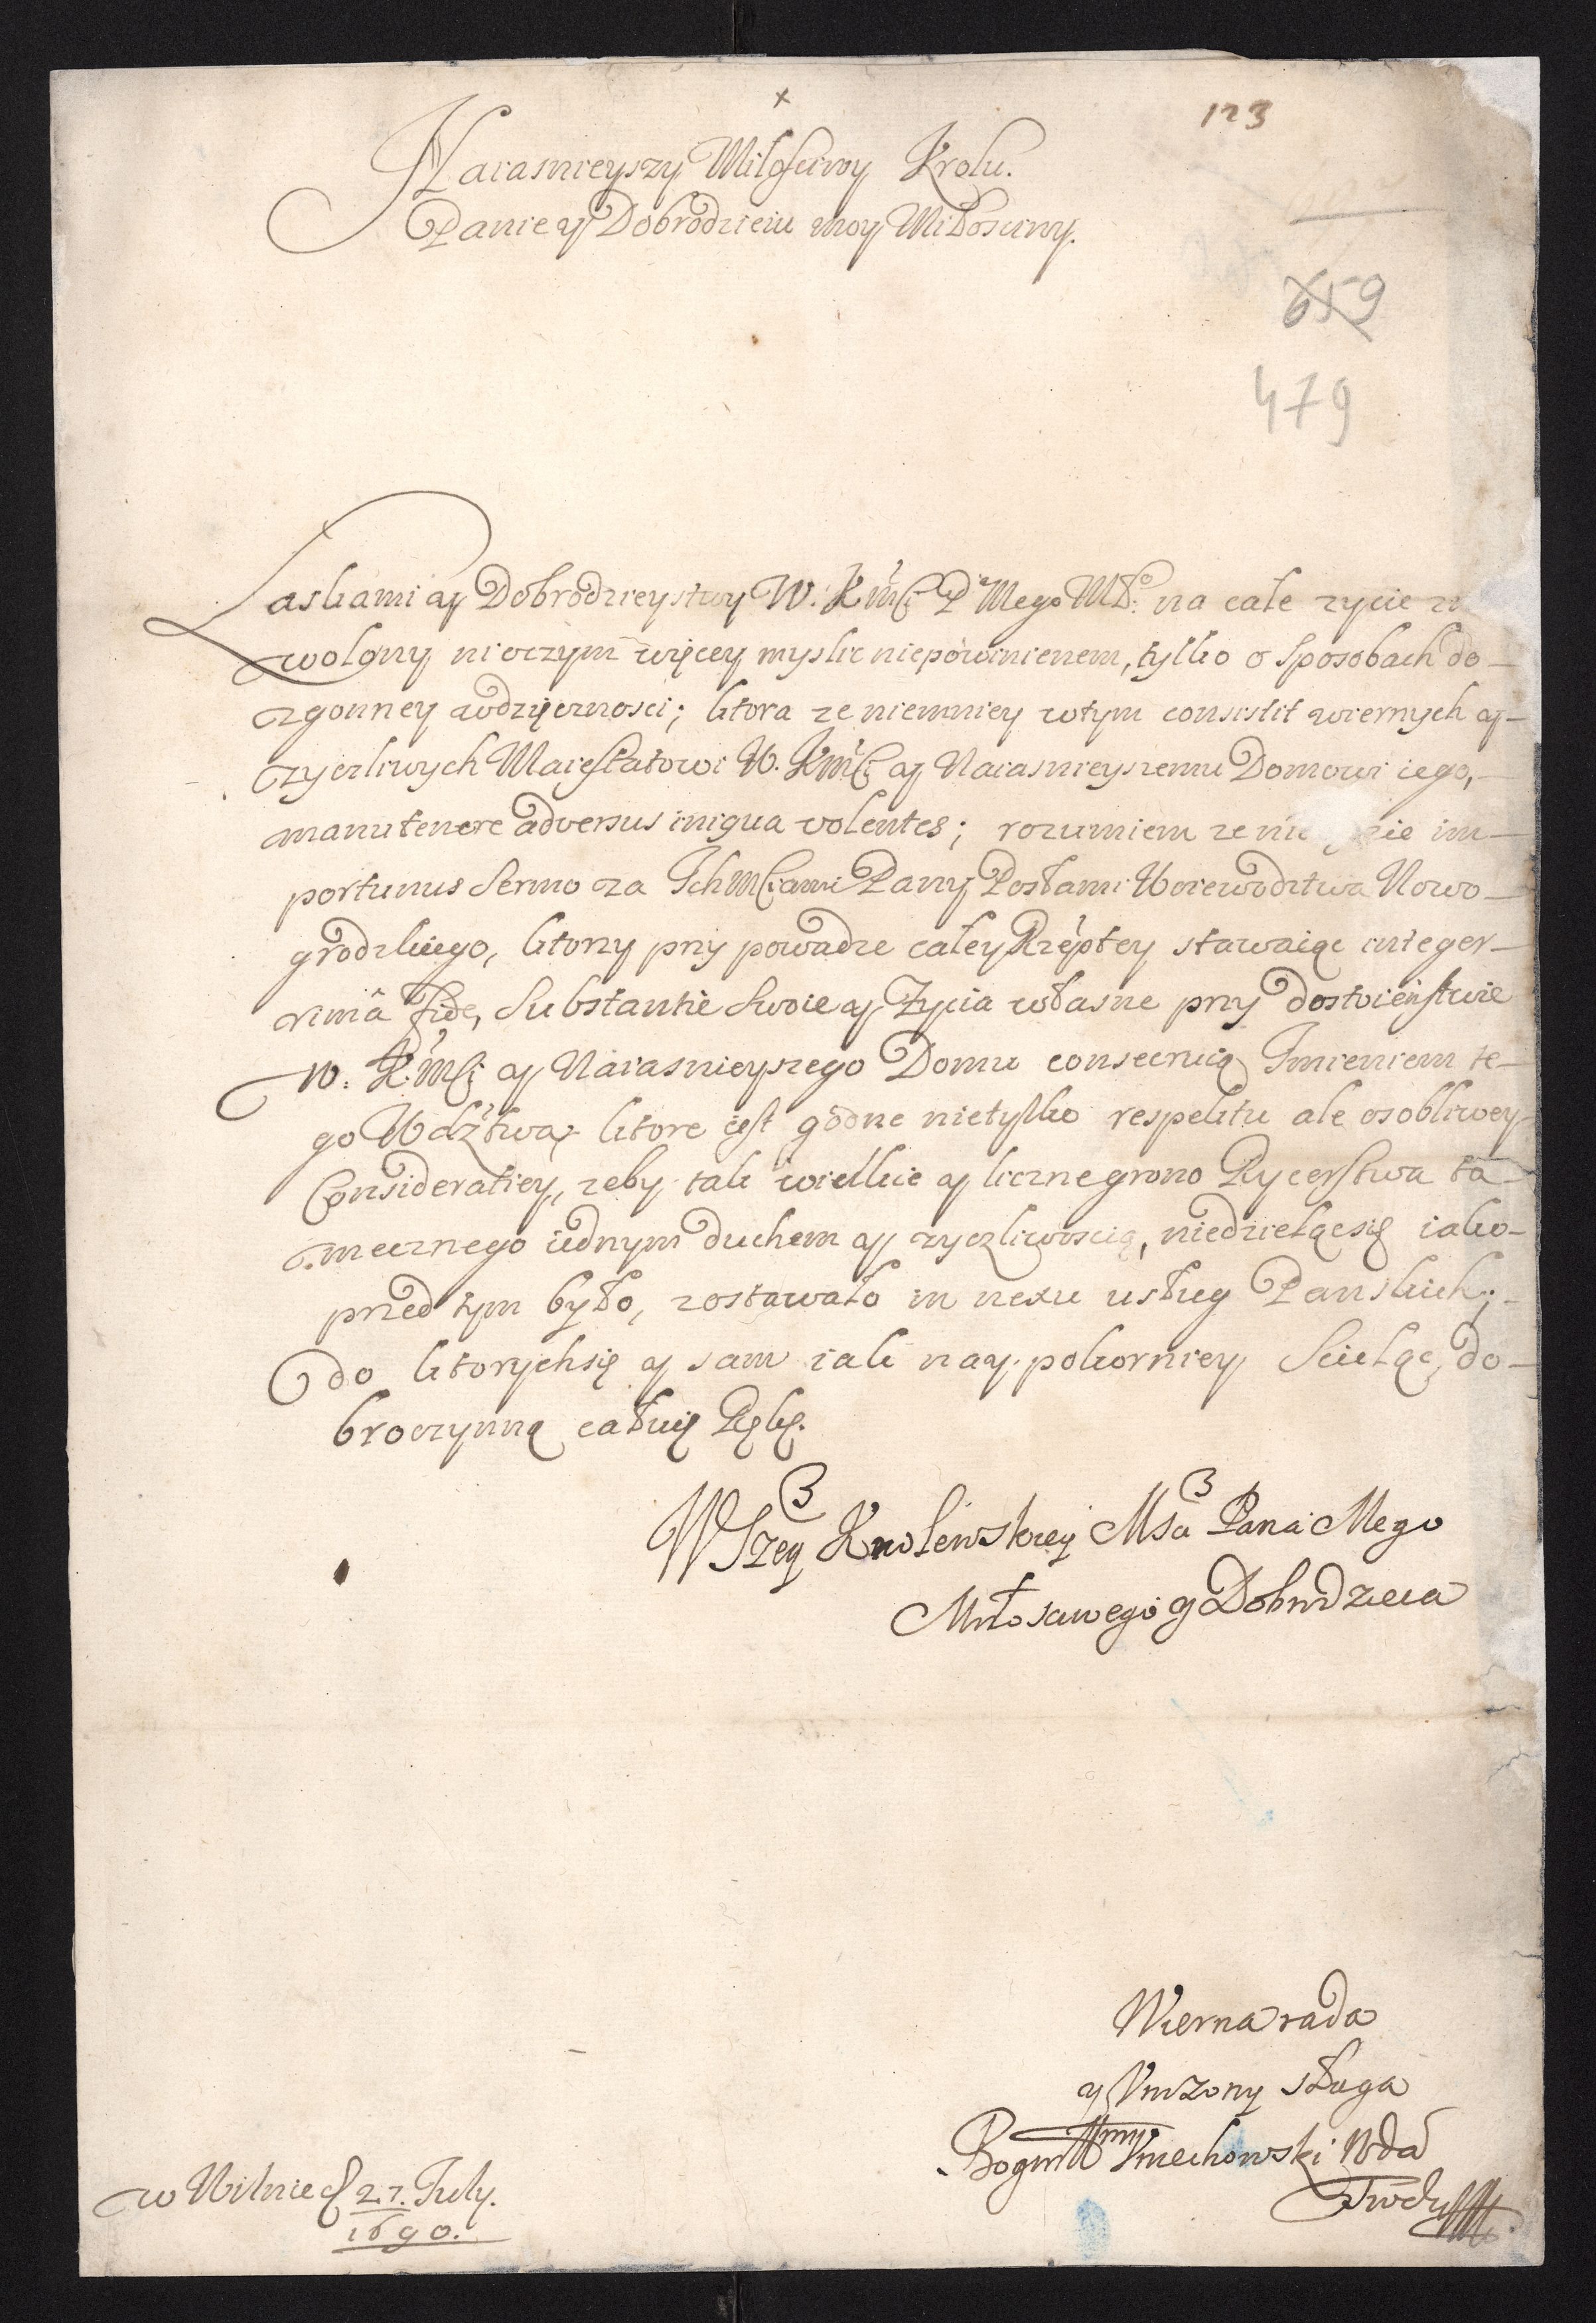 x
123
Naiasnieyszy Miłościwy Krolu.
Panie y Dobrodzieiu moy Miłosciwy.
659
479
Laskami y Dobrodzieystwy W. KMśći P. Mego Młgo na całe zycie
wolony nioczym więcey myslic niepowinienem, tylko o sposobach do-
zgonney wdzięcznosci; ktora ze niemniey wtym consistit wiernych y-
zyczliwych Maiestatowi W. KMśći y Naiasnieyszemu Domowi iego,-
manutenere adversus iniqua volentes; rozumiem ze im-
portunus sermo za Ichmśćiami Pany Posłami Woiewodztwa Nowo-
grodzkiego, ktorzy przy powadze całey Rzeptey stawaiąc integer-
rimâ fide, substantie swoie y Zycia własne przy dostoieństwie
W. K. Mśći y Naiasnieyszego Domu consecruią Imieniem te-
go Wdztwa, ktore iest godne nietylko respektu ale osobliwey
Consideratiey, zeby tak wielkie y liczne grono Rycerstwa ta-
mecznego iednym duchem y zyczliwoscią, niedzieląc się iako-
przed tym było, zostawało in nexu usług Panskich;-
do ktorych się y sam iak nay pokorniey scieląc, do-
broczynną całuię Rękę.
WSzey Krolewskiey Msci Pana Mego
Miłosciwego y Dobrodzieia
Wierna rada
y Vnizony sługa
Vniechowski Wda
Trocki
w Wilnie d 27. July.
1690.